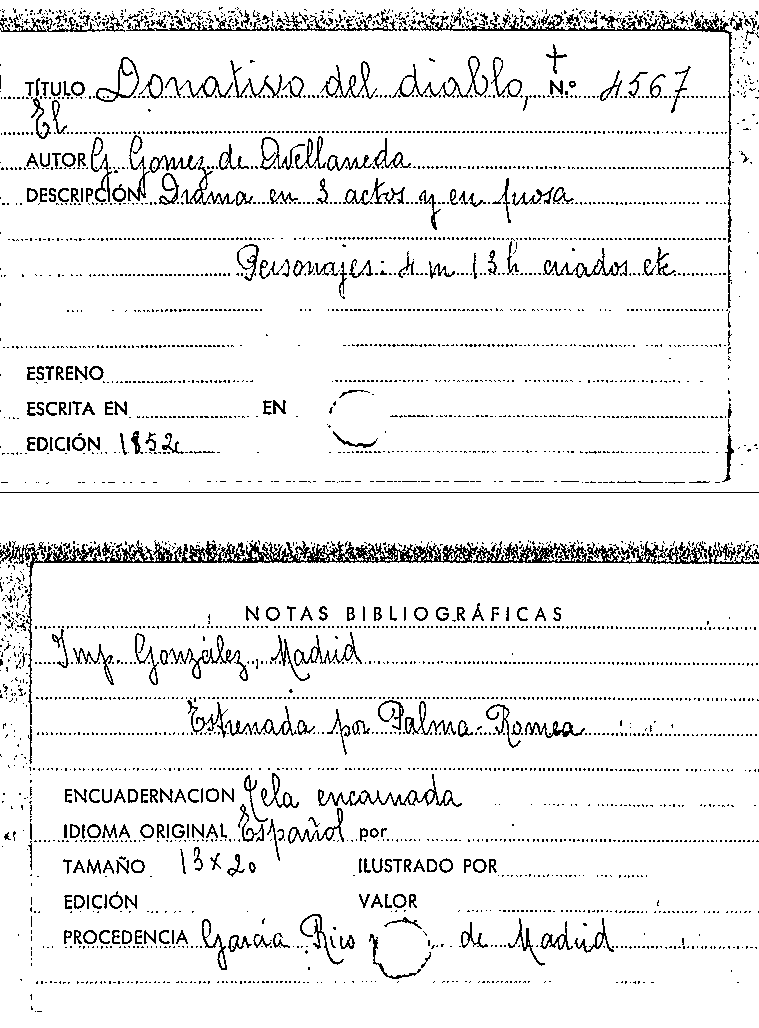 TÍTULO Donativo del diablo, N.º 4567
El
AUTOR G. Gomez de Avellaneda
DESCRIPCIÓN Drama en 3 actos y en prosa
Personajes: 4 m 13 h criados etc
ESTRENO
ESCRITA EN EN
EDICIÓN 1852
NOTAS BIBLIOGRÁFICAS
Imp. González, Madrid
Estrenada por Palma-Romea
ENCUADERNACION Tela encarnada
IDIOMA ORIGINAL Español por
TAMAÑO 13 x 20 ILUSTRADO POR
EDICIÓN VALOR
PROCEDENCIA García Rico y de Madrid